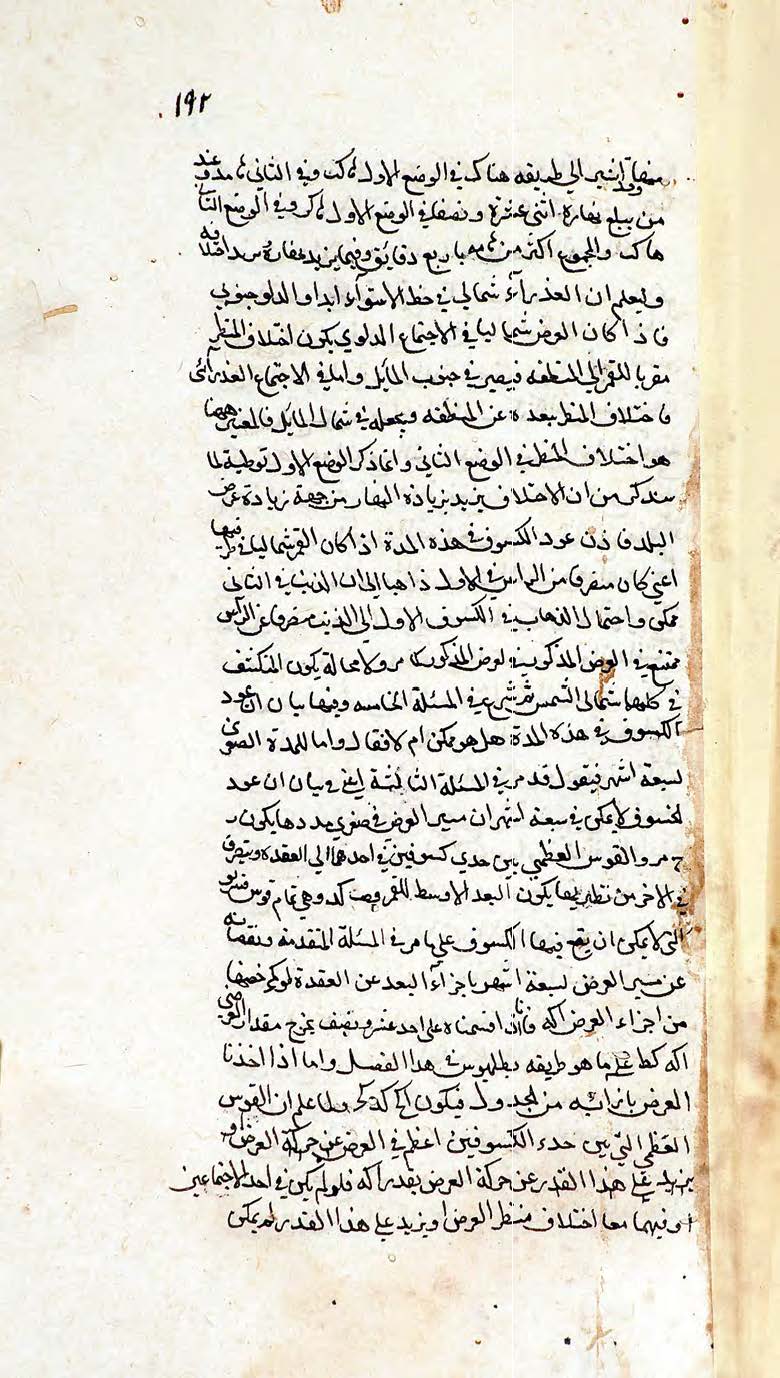 ١٩٢
وقد اشير الي طريقه هناك في الوضع الاول ٤ كب وفي الثاني عند
من يبلغ نهاره اثنى عشرة ونصفا في الوضع الاول وفي الوضع الثا
والمجموع اكثر من باربع دقايق وفيما يزيد نهاره يزيد اختلافه
وليعلم ان العذراء شمالي في خط الاستواء ابدا والدلو جنوبي
فاذا كان العرض شماليا في الاجتماع الدلوي يكون اختلاف المنظر
مقربا للقمر الي المنطقه فيصير في جنوب المايل واما في الاجتماع العذرائي
فاختلاف المنظر يبعده عن المنطقه ويجعله في شمال المايل فالمعتبر ههنا
هو اختلاف المنظر في الوضع الثاني وانما ذكر الوضع الاول توطية لما
سنذكر من ان الاختلاف يزيد بزيادة النهار من جهة زيادة عرض
البلد فاذن عود الكسوف في هذه المدة اذا كان القمر شماليا فيها
اعني كان منصرفا من الراس في الاول ذاهبا الي الذنب في الثاني
ممكن واحتمال الذهاب في الكسوف الاول الي الذنب منصرفا عن الراس
ممتنع في العرض المذكور لما مر ولا محالة يكون المنكسف
في كليهما شمالي الشمس ثم شرع في المسئلة الخامسه وفيها بيان ان عود
الكسوف في هذه المدة هل هو ممكن ام لا فقال واما للمدة الصغرى
لسبعة اشهر فيقول قد مر في المسئلة الثالثة اعني في بيان ان عود
الخسوف لا يمكن في سبعة اشهر ان مسير العرض في صغري مددها يكون
والقوس العظمي بين حدي كسوفين في احدهما الي العقدة وينصرف
في الاخر من نظيرتها يكون البعد الاوسط للقمر وهي تمام قوس
التي لا يمكن ان يقع فيها الكسوف علي ما مر في المسئلة المتقدمة ونقصانه
عن مسير العرض لسبعة اشهر باجزاء البعد عن العقدة
من اجزاء العرض اكه فانا اذا قسمناه على احد عشر ونصف يخرج مقدار العرض
اكه كط علي ما هو طريقه بطلميوس في هذا الفصل واما اذا اخذنا
العرض بازائه من الجدول فيكون ولما علم ان القوس
العظمي التي بين حدي الكسوفين اعظم في العرض عن حركة العرض و
يزيد علي هذا القدر عن حركة العرض بقدر اكه فلو لم يكن في احد الاجتماعين
او فيهما معا اختلاف منظر العرض او يزيد علي هذا القدر لم يمكن